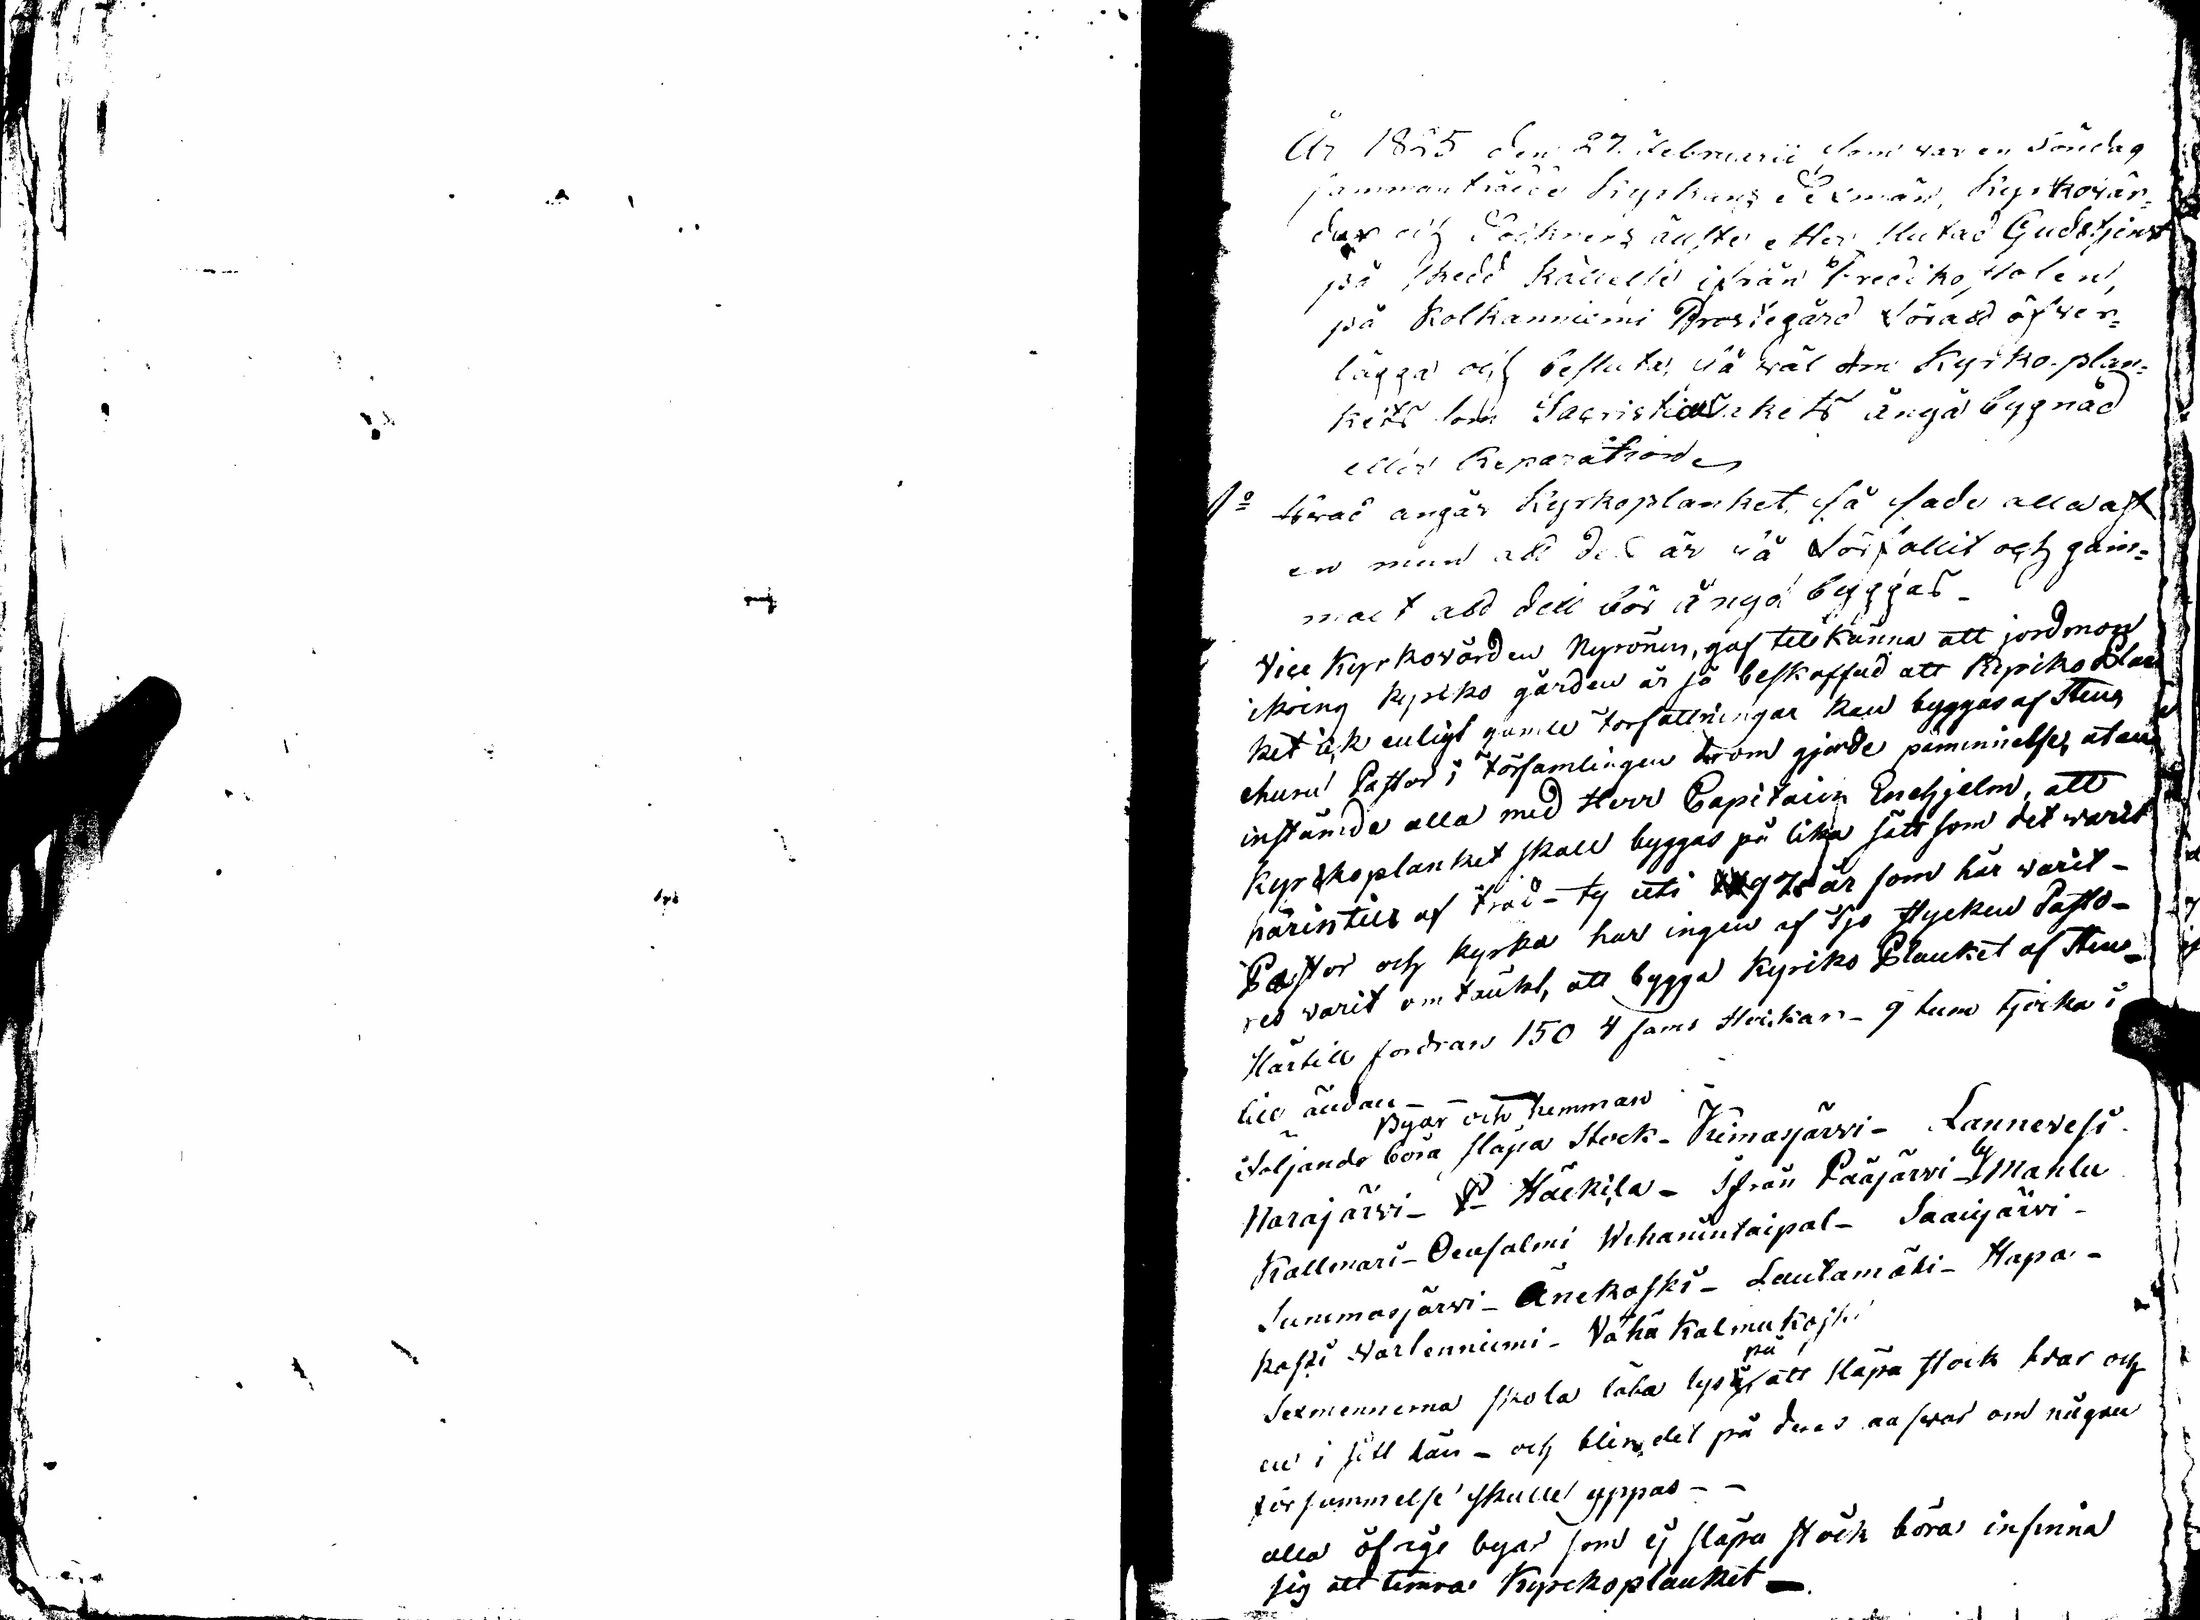 År 1825 den 27. Februarii som var en Söndag
sammanträdde Kyrkans Sexmän, Kyrkovär=
dar och Socknens äldste efter slutad Gudstjenst
på skedd kallelse ifrån Prediko stolen,
på Kolkanniemi Prostegård förätt öfver=
lägga och besluta, så väl om Kyrko-plan=
kets som Sacristietakets ånya bygnad
eller Reparation
1o Hvad angår Kyrkoplanket så sade alla af
en mun att det är så förfallit och gam=
malt att dett bör å nyo byggas -
Vice Kyrkovärden Nyrönen, gaf tillkänna att jordmon
ikring kyrko gården är så beskaffad att Kyrko Plan
ket ick enligt gamle Författningar kan byggas af Sten
ehuru Pastor i Församlingen hrom gjorde påminnelse, utan
instämde alla med Herr Capitain Enehjelm, att
Kyrkoplanket skall byggas på lika sätt som det varit
härintill af träd - ty uti 97 år som här varit -
Pastor och kyrka har ingen af Sju stycken Pasto-
rer varit omtänkt, att bygga Kyrko Planket af Sten -
Härtill fordras 150 4 fams Stockar - 9 tum tjocka i
lill ändan -
Byar och hemman
Följande böra släpa Stock - Kimasjärvi - Lannevesi
Harajärvi - P Häckilä - Ifrån Pääjärvi - by Mahlu
Kallmari - Ocasalmi Wehanintaipal - Saarijärvi -
Summasjärvi - Änekoski - Lautamäki - Hapa -
koski Warlenniemi - Vähä Kalmukoski
Sexmennerna skola låta lysa på att släpa stock hvar och
en i sitt län - och blir det på deras ansvar om någon
försummelse skulle yppas - -
alla öfrige byar som ej släpa stock böra infinna
sig att timra Kyrckoplanket -.